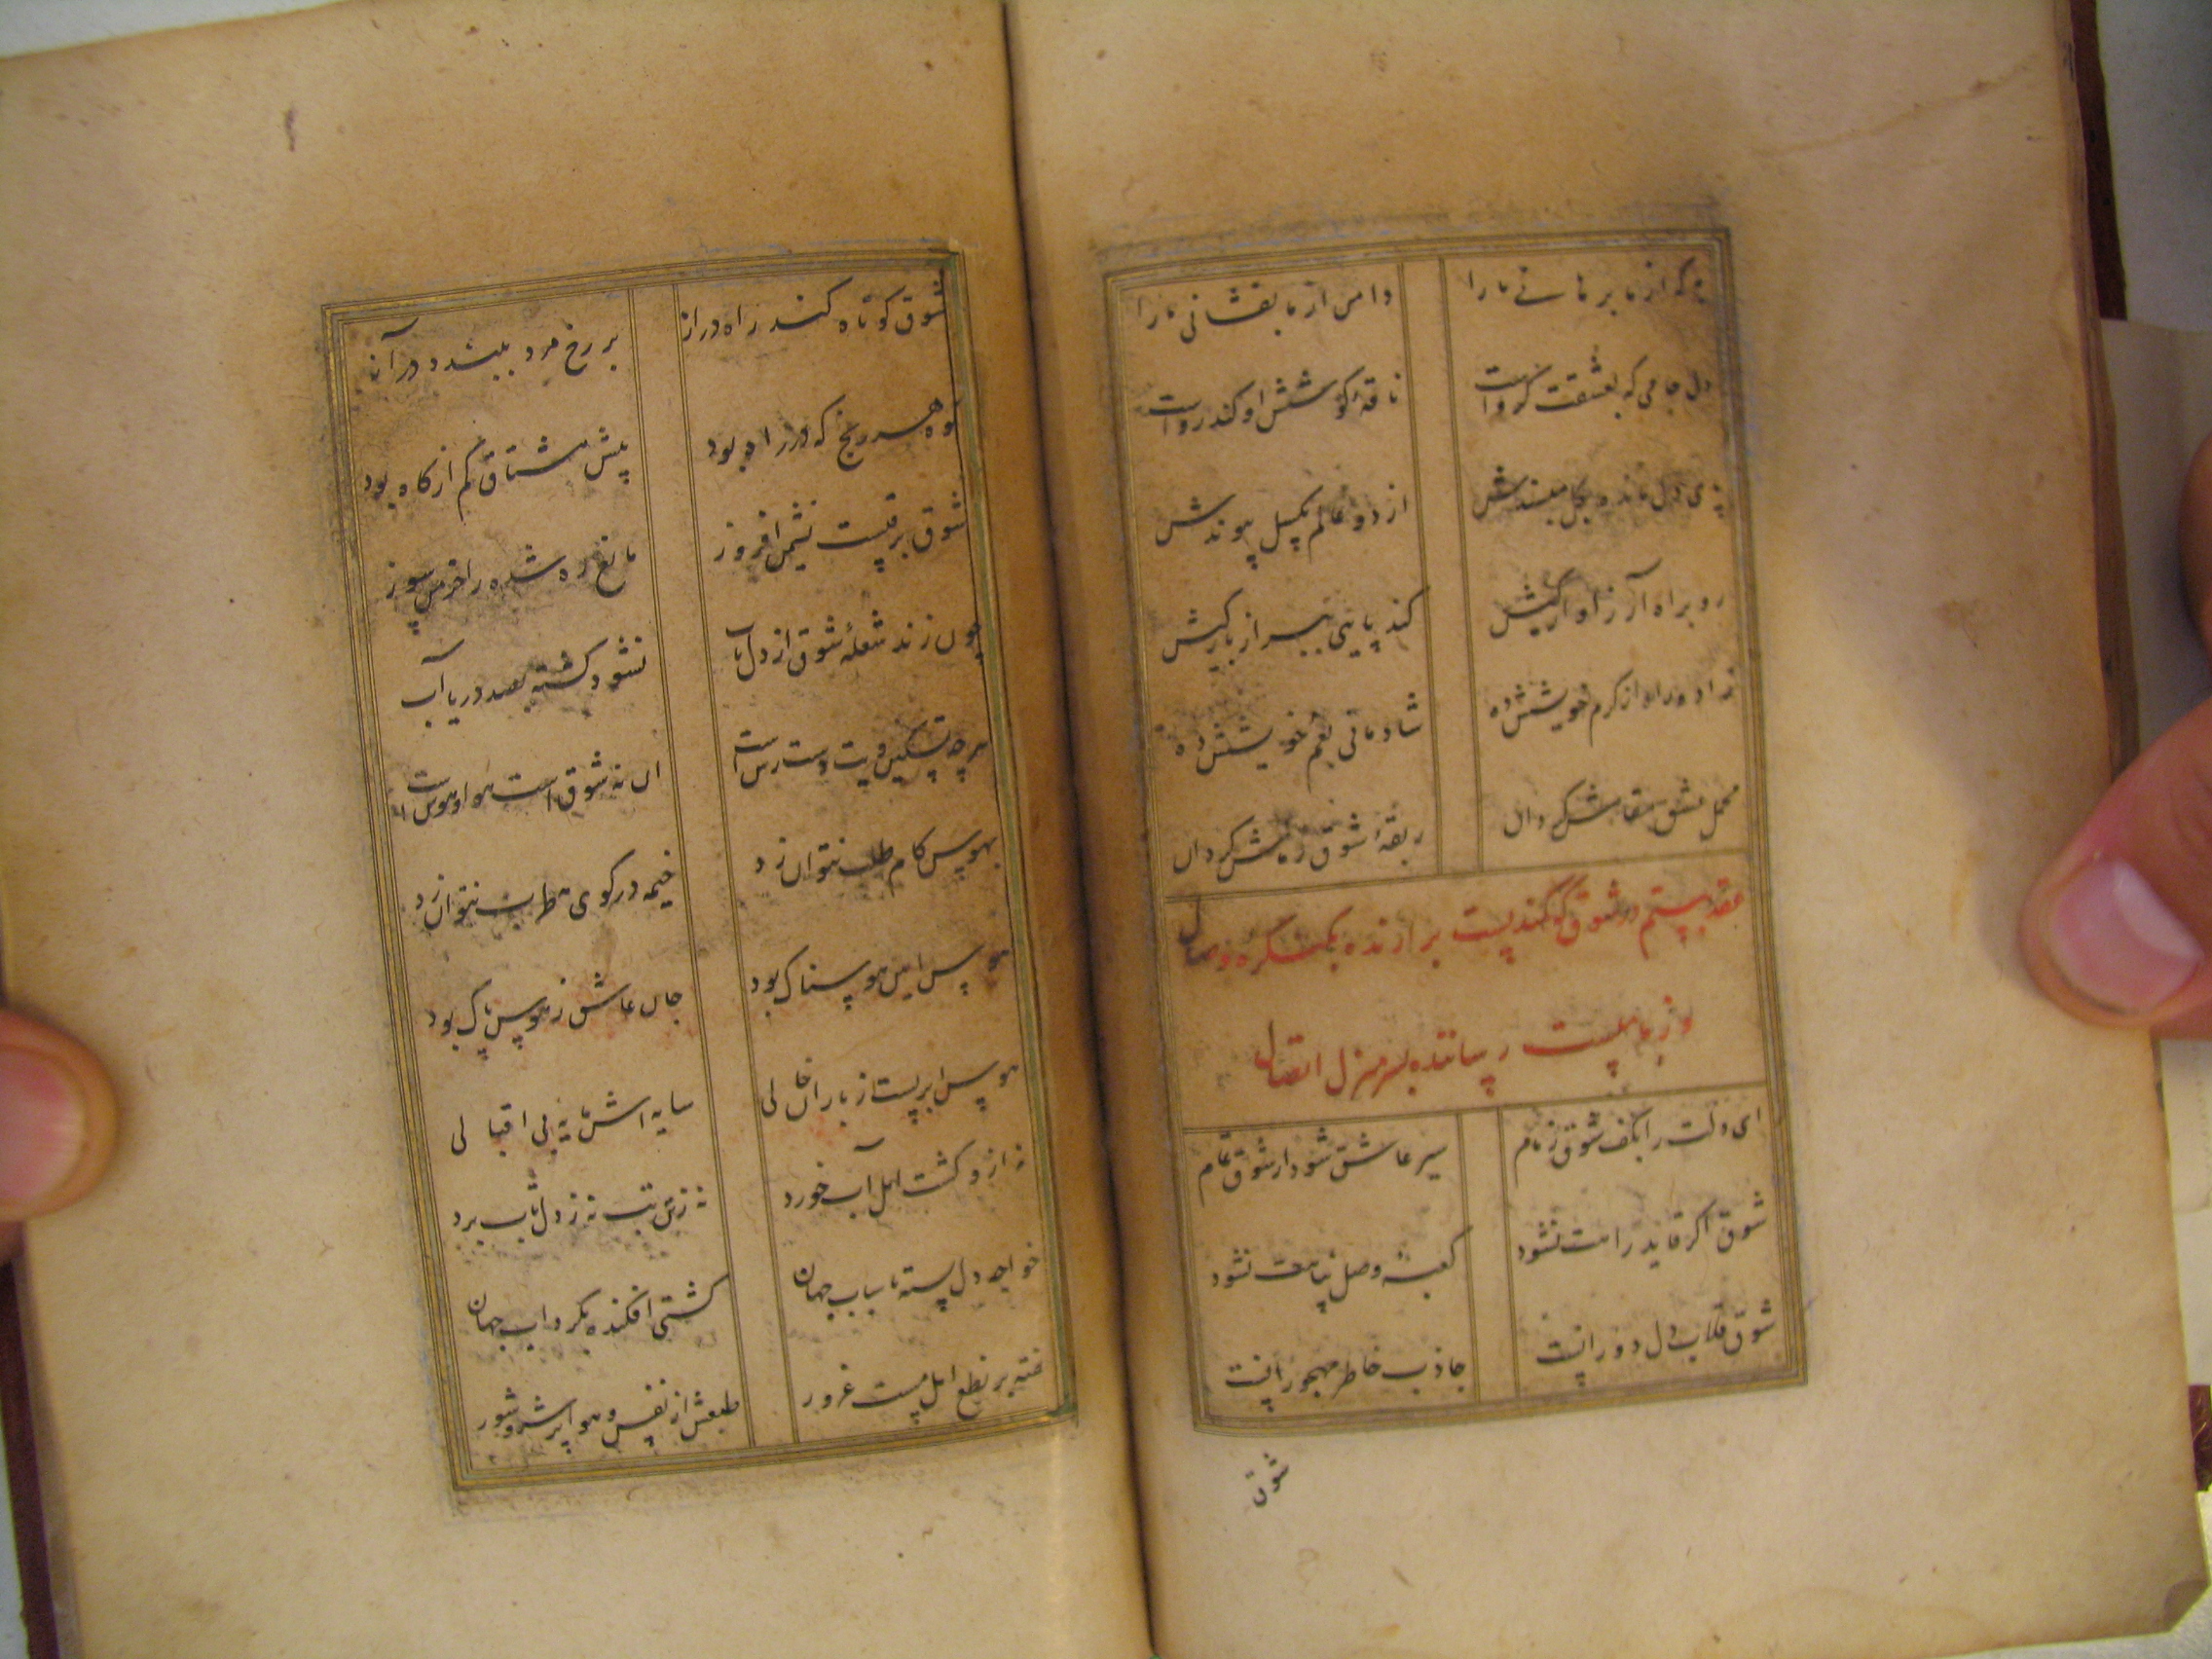 که از ما برهانی ما را دامن از ما بفشانی ما را
دل جامی که بعشقت گرواست ناقهٔ کوشش او کندرواست
پای دل مانده بگل مپسندش از دو عالم بگسل پیوندش
رو براه آر ز آوارگیش کند پایی ببر از بارگیش
زاد و راه از کرم خویشش ده شادمانی بغم خویشش ده
محمل عشق مقامش گردان ربقهٔ شوق زمامش گردان
عقد بیستم در شوق که کمندیست برازنده بکنگره وصال
وزمامیست رساننده بسرمنزل اتصال
ای دلت را بکف شوق زمام سیر عاشق شود از شوق تمام
شوق اگر قاید راهت نشود کعبهٔ وصل پناهت نشود
شوق قلاب دل دورانست جاذب خاطر مهجورانست
شوق
شوق کوتاه کند راه دراز بر رخ مرد ببندد در آز
کوه هر رنج که در راه بود پیش مشتاق کم از کاه بود
شوق برقیست نشیمن افروز مانع ره شده را خرمن سوز
چون زند شعلهٔ شوق از دل تاب نشود کشته بصد دریا آب
هرچه تسکین ویت دسترس است ان نه شوق است هوا و هوس است
بهوس کام طلب نتوان زد خیمه در کوی طرب نتوان زد
هوس ایین هوسناک بود جان عاشق ز هوس پاک بود
هوس ابریست ز باران خالی سایه اش مایه بی اقبالی
نه ازو کشت امل آب خورد نه ز تن تب نه ز دل تاب برد
خواجه دل بسته باسباب جهان کشتی افکنده بگرداب جهان
خفته بر نطع امل مست غرور طبعش از نفس و هوا پر شر و شور